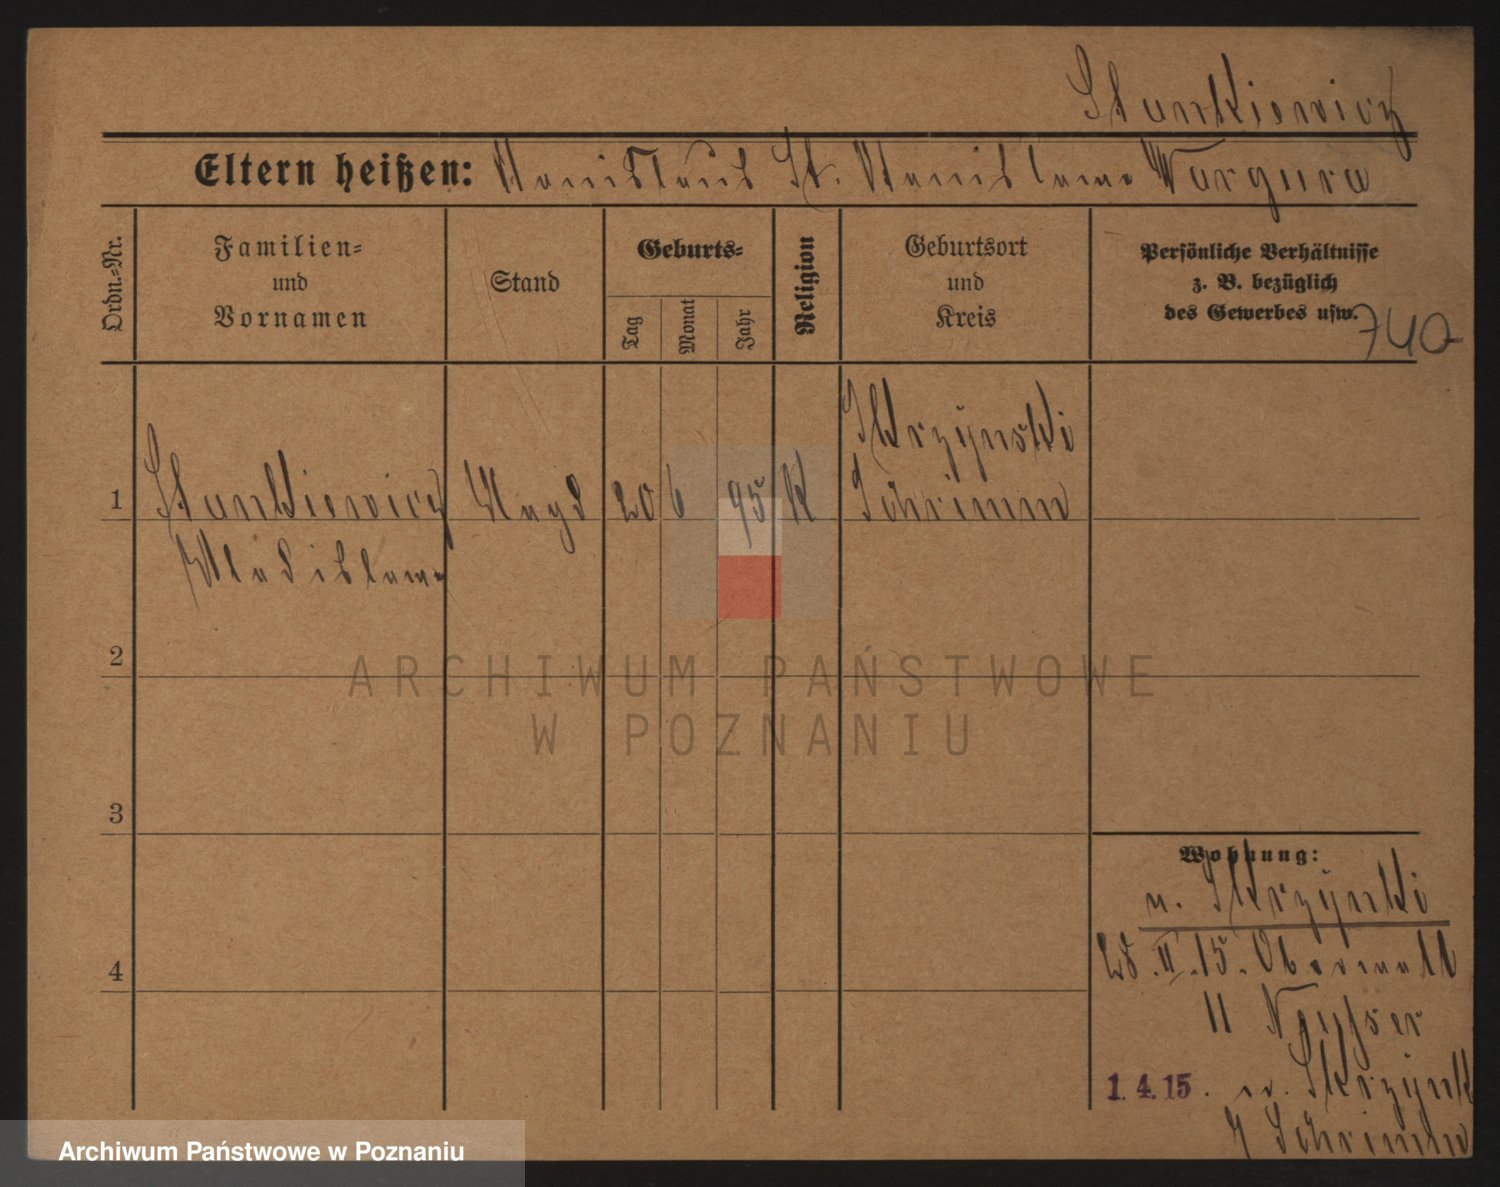 Stankiewicz
Eltern heißen: Stanislaus St. Stanislawa Wargura
Ordn.-Nr.
Familien-
und
Vornamen
Stand
Geburts-
Tag
Monat
Jahr
Religion
Geburtsort
und
Kreis
Persönliche Verhältnisse
z. B. bezüglich
des Gewerbes usw.
740
Skrzynski
1 Stankiewicz Magd 20 6 95 K Schrimm
Wladislawa
2
3
4
Wohnung:
n. Skrzynki
28.II.15. Oberwall
11
1.4.15. Skrzynk
Schrimm
ARCHIWUM PAŃSTWOWE
W POZNANIU
Archiwum Państwowe w Poznaniu